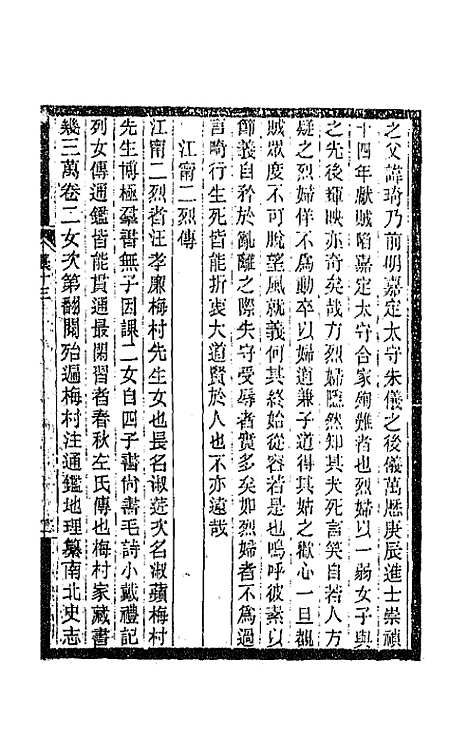 之父諱琦乃前明嘉定太守朱儀之後儀萬歷庚辰進士崇禎
十四年獻賊陷嘉定太守合家殉難者也烈婦以一弱女子與
之先後輝映亦奇矣哉方烈婦聞然知其夫死言笑自若人方
疑之烈婦佯不為動卒以婦道兼子道得其姑之歡心一旦覩
賊眾度不可脫望風就義何其終始從容若是也嗚呼彼素以
節義自矜於亂離之際失守受辱者實多矣如烈婦者不為過
言畸行生死皆能折衷大道賢於人也不亦遠哉
江甯二烈傳
江甯二烈者汪孝廉梅村先生女也長名淑蓮次名淑蘋梅村
先生博極羣書無子因課二女自四子書尚書毛詩小戴禮記
列女傳通鑑皆能貫通最閑習者春秋左氏傳也梅村家藏書
幾三萬卷二女次第翻閱殆遍梅村注通鑑地理纂南北史志
集十三